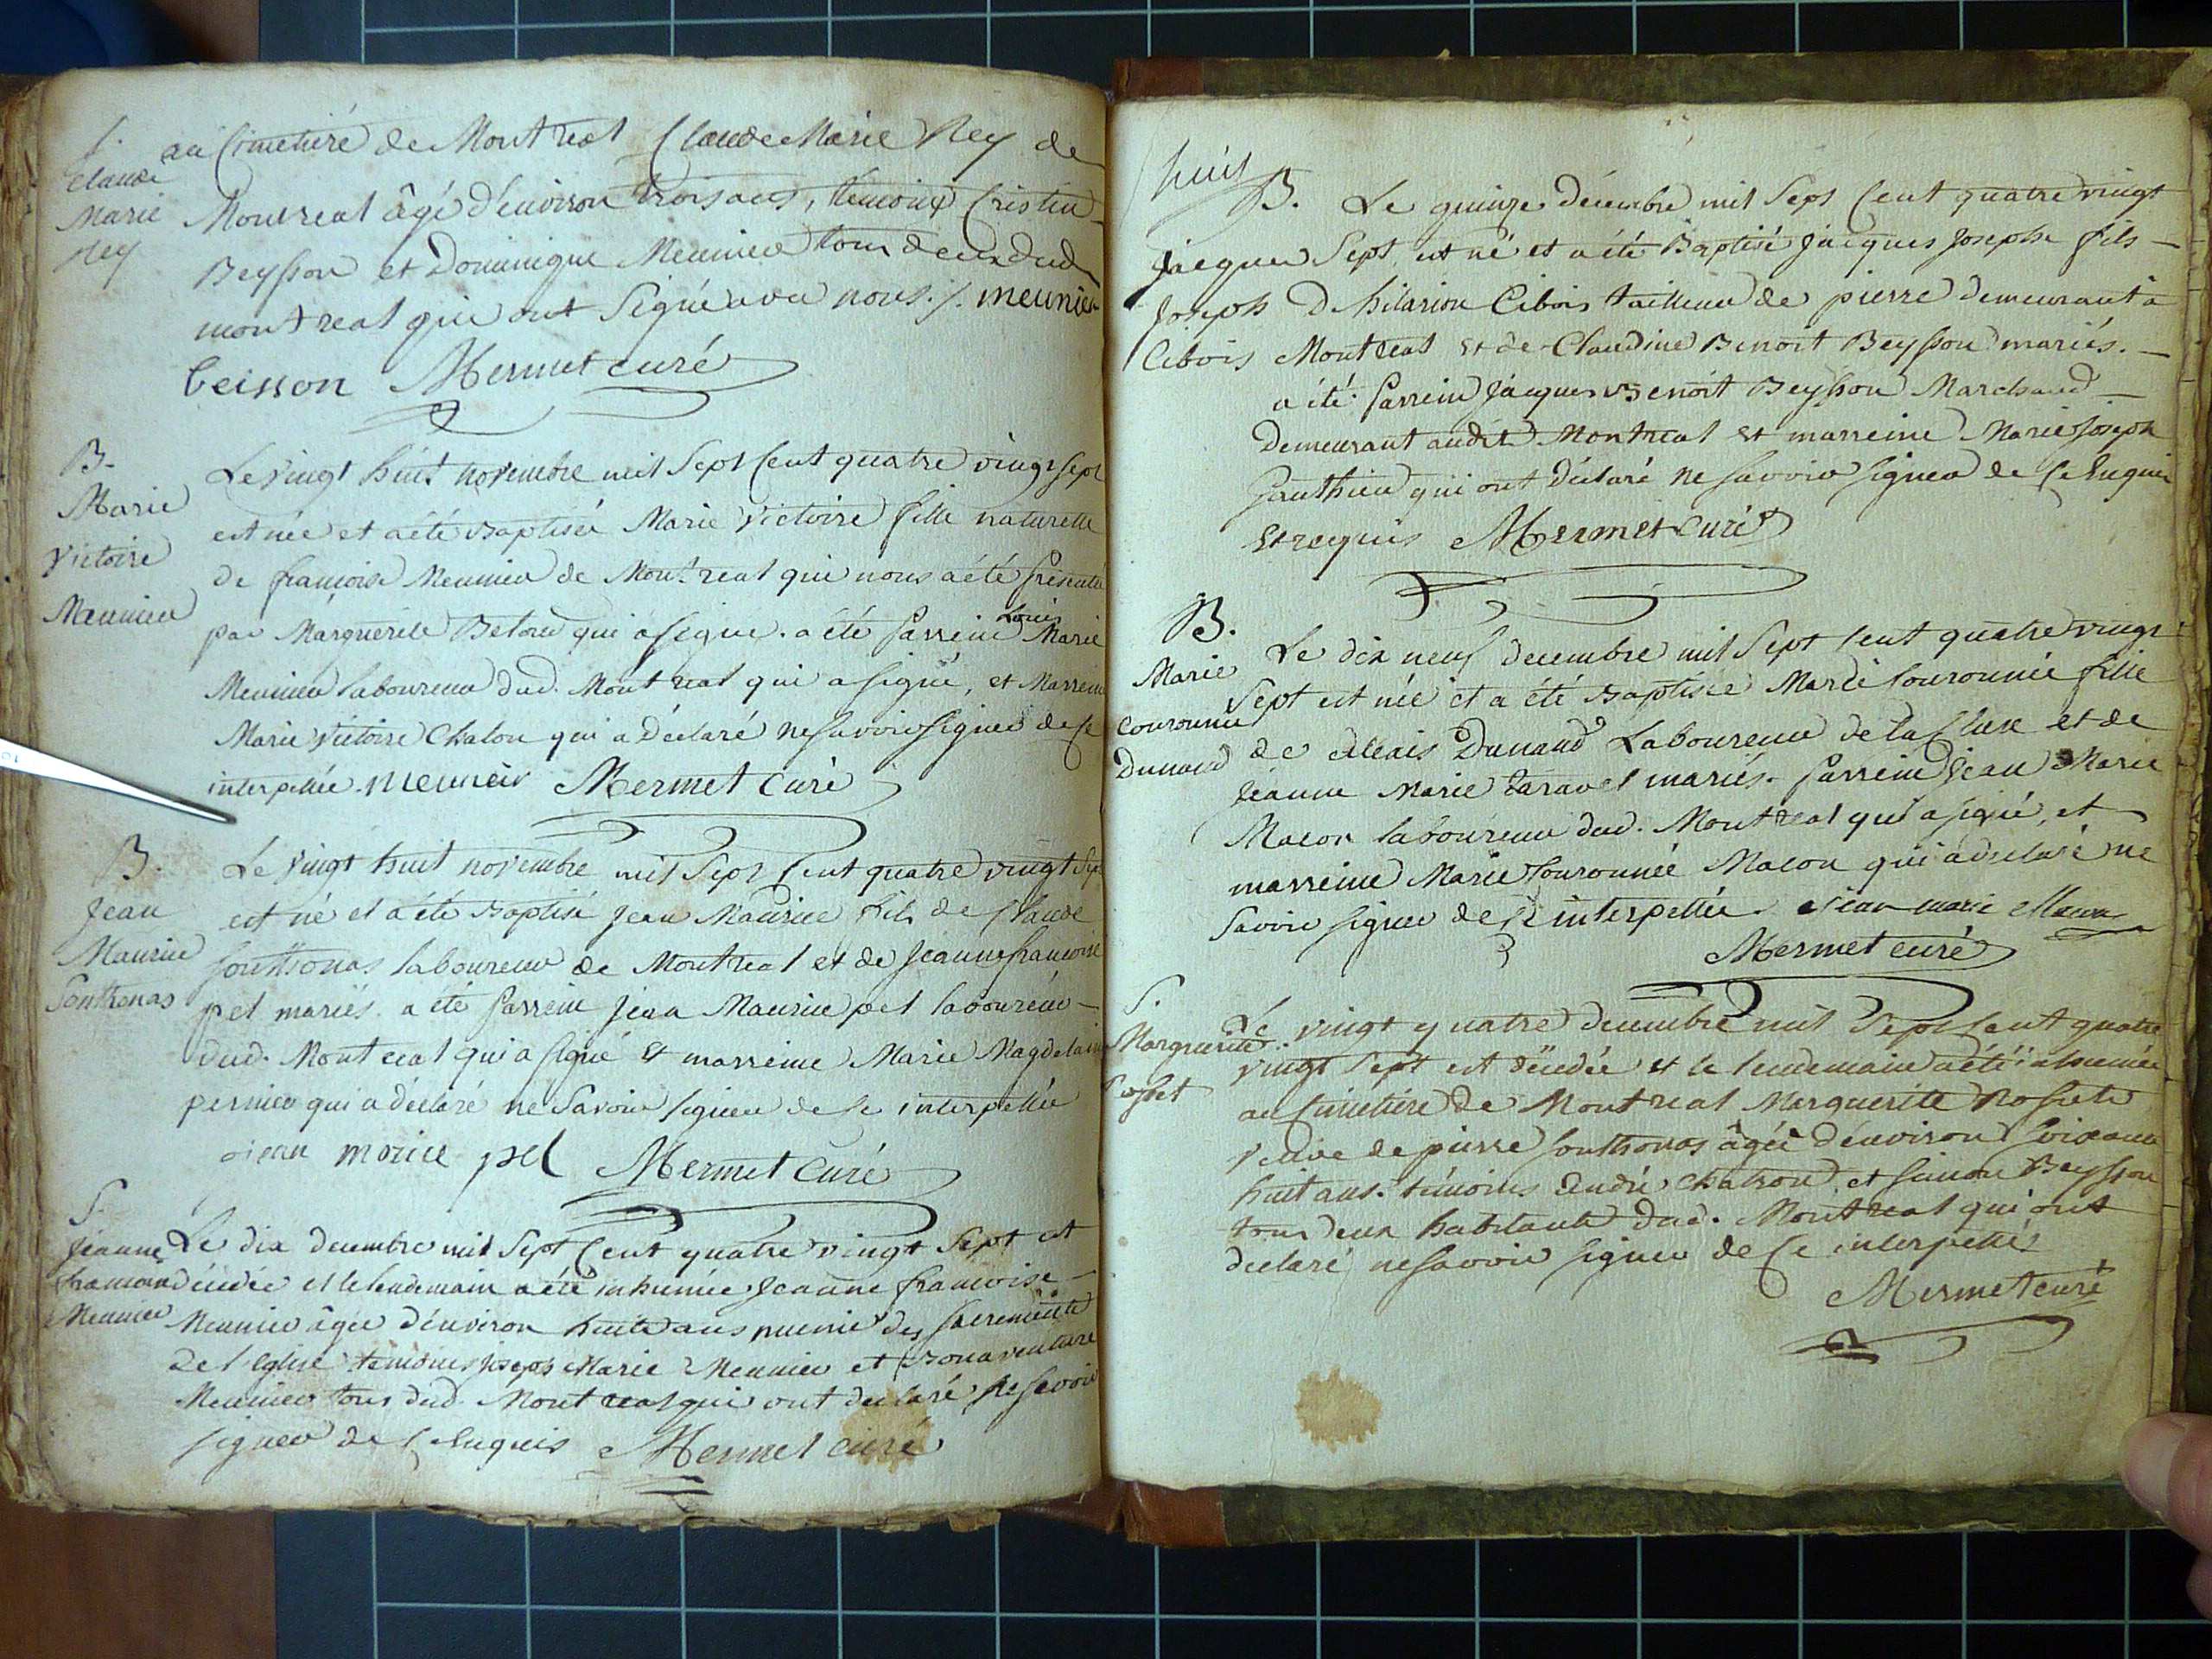 S.
Claude
Marie
Rey
au Cimetiére de Montreal Claude Marie Rey de
Montreal âgé d'environ trois ans, temoins Cristin
Beysson et Dominique Meunier tous deux dud.
montreal qui ont Signé avec nous ./. meunier
beisson Mermet curé
B.
Marie
Victoire
Meunier
Le vingt huit novembre mil Sept Cent quatre vingt sept
est née et a été Baptisée Marie Victoire fille naturelle
de francoise Meunier de Montreal qui nous a été presentée
par Marguerite qui a signé. a été Parrein Louis Marie
Meunier laboureur dud. Montreal qui a signé, et Marreine
Marie Victoire Chalon qui a Déclaré ne savoir signer de ce
interpellée. meunier Mermet Curé
B.
Jean
Maurice
Sonthonas
Le Vingt huit novembre mil Sept Cent quatre vingt Sept
est né et a été Baptisé Jean Maurice fils de Claude
Sonthonas laboureur de Montreal et de Jeanne francoise
pel mariés. a été Parrein Jean Maurice pel laboureur
dud. Montreal qui a signé et marreine Marie Magdelaine
pernier qui a déclaré ne Savoir signer de ce interpellée
jean morice pel Mermet Curé
S.
Jeanne
francoise
Meunier
Le dix decembre mil Sept Cent quatre vingt Sept est
décédée et le lendemain a été inhumée Jeanne francoise
Meunier âgée d'environ huit ans munie des sacrements
de l'Eglise temoins joseph Marie Meunier et Bonaventure
Meunier tous dud. Montreal qui ont declaré ne savoir
signer de ce Enquis Mermet curé
huit
B.
Jacques
Joseph
Cibois
Le quinze décembre mil Sept Cent quatre vingt
Sept est né et a été Baptisé Jacques Joseph fils
D'hilarion Cibois tailleur de pierre demeurant à
Montreal et de Claudine Benoit Beysson mariés.
a été Parrein Jacques Benoit Beysson Marchand
Demeurant audit Montreal et marreine Marie Joseph
Gauthier qui ont Déclaré ne savoir signer de ce Enquis
et requis Mermet Curé
B.
Marie
Couronnée
Dunand
Le dix neuf decembre mil Sept Cent quatre vingt
Sept est née et a été Baptisée Marie Couronnée fille
de Alexis Dunand Laboureur de la Cluse et de
Jeanne Marie taravel mariés. Parrein Jean Marie
Macon laboureur dud. Montreal qui a signé, et
marreine Marie Couronnée Macon qui a declaré ne
Savoir signer de ce interpellée. jean marie Macon
Mermet curé
S.
Marguerite
Rosset
Le vingt quatre decembre mil Sept Cent quatre
vingt Sept est décédée et le lendemain a été inhumée
au Cimetiére de Montreal Marguerite Rosset
veuve de pierre Sonthonas âgée d'environ soixante
huit ans. témoins André Chatron et Simon Beysson
tous deux habitants dud. Montreal qui ont
declaré ne savoir signer de ce interpellés
Mermet curé